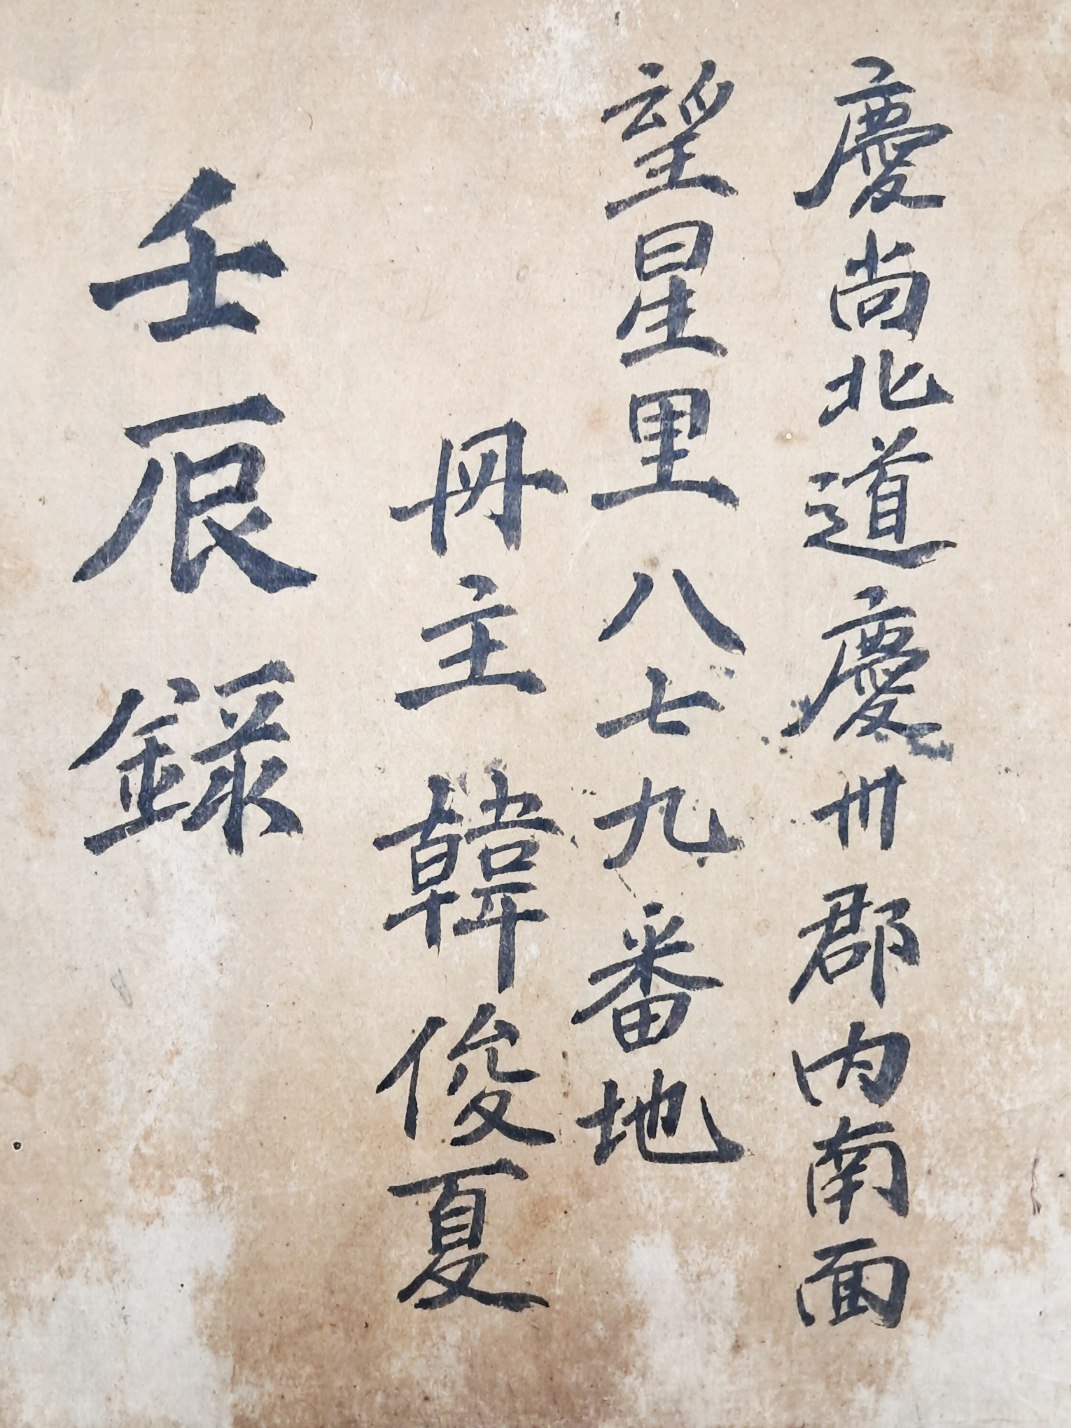 慶尚北道慶州郡內南面
望星里八七九番地
冊主韓俊夏
壬辰錄